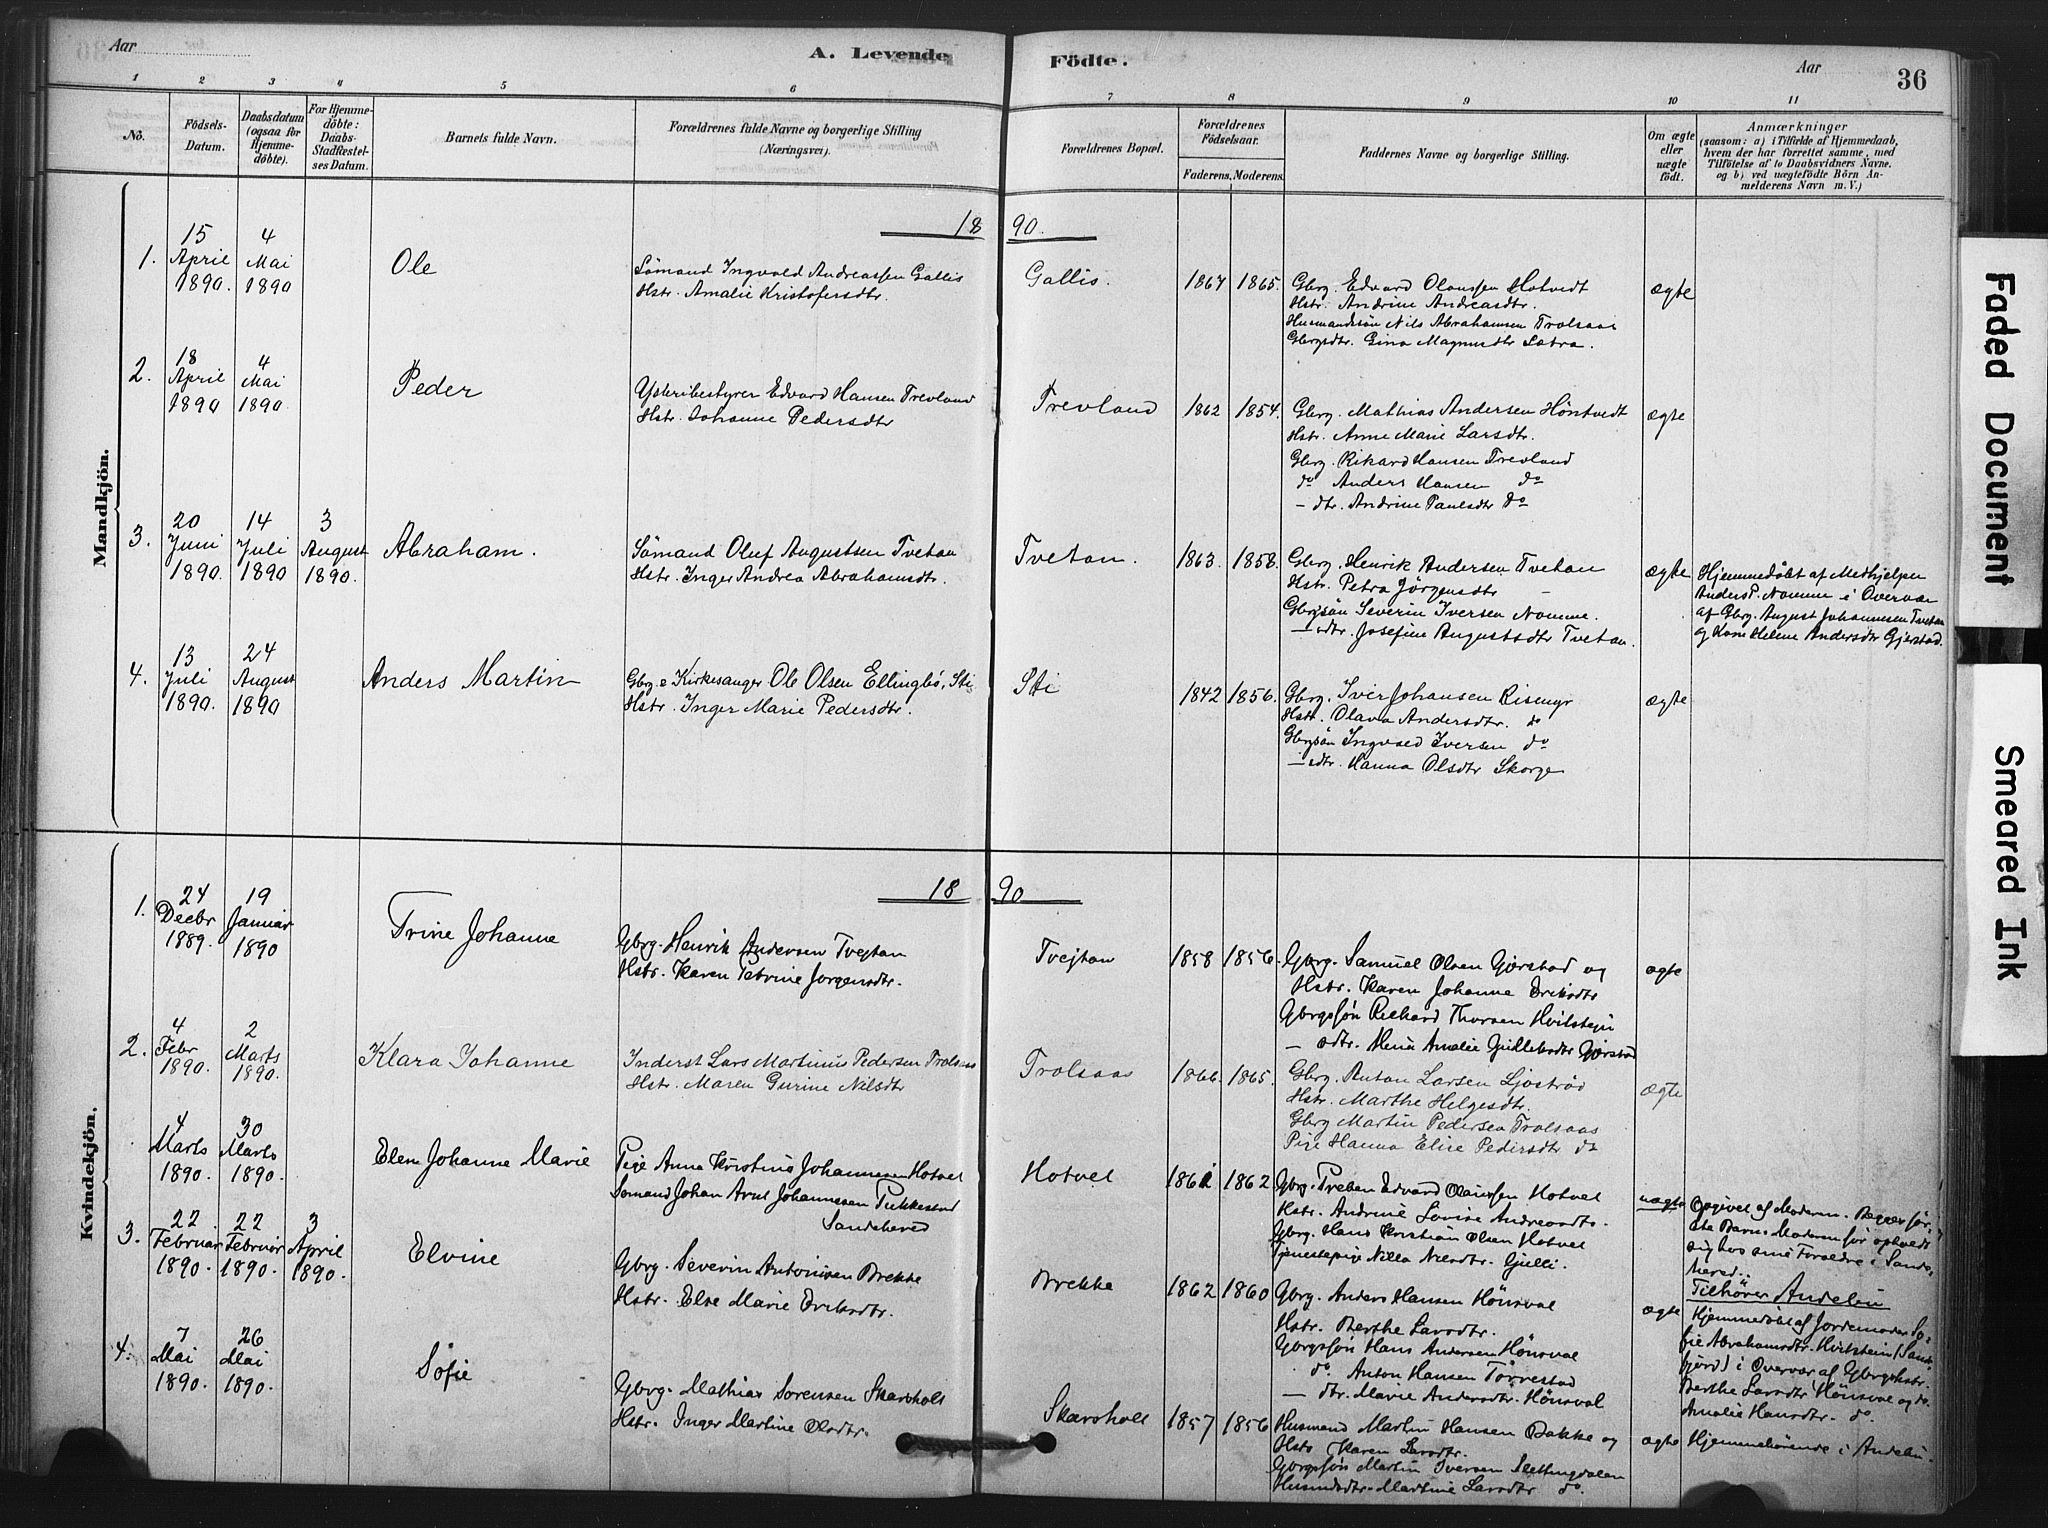 Aar
A. Levende Födte.
Aar
36
1 2 3 4 5 6 7 8 9 10 11
No.
Födsels-Datum.
Daabsdatum (ogsaa for Hjemmedöbte).
For Hjemmedöbte: Daabs-Stadfæstelses Datum.
Barnets fulde Navn.
Forældrenes fulde Navne og borgerlige Stilling (Næringsvei).
Forældrenes Bopæl.
Forældrenes Födselsaar.
Faderens. Moderens.
Faddernes Navne og borgerlige Stilling.
Om ægte eller uægte födt.
Anmærkninger
(saasom: a) i Tilfælde af Hjemmedaab, hvem der har forrettet samme, med Tilföielse af to Daabsvidners Navne. og b) ved uægtefödte Börn Anmelderens Navn m. V.)
Mandkjön.
18 90.
1.
15 April 1890.
4 Mai 1890
Ole
Sömand Ingvald Andreassen Gallis
Hstr. Amalie Kristofersdtr.
Gallis.
1867 1865.
Gbrg. Edvard Olaussen Hotvedt
Hstr. Andrine Andreasdtr.
Husmandssön Nils Abrahamsen Trolsaas
Gbrgsdtr. Gina Magnusdtr Sætra.
ægte
2.
18 April 1890
4 Mai 1890.
Peder
Ysteribestyrer Edvard Hansen Trevland
Hstr. Johanne Pedersdtr
Trevland
1862 1854.
Gbrg. Mathias Andersen Höntvedt
Hstr. Anne Marie Larsdtr.
Gbrg. Rikard Hansen Trevland
do Anders Hansen do
- dtr. Andrine Paulsdtr do
ægte
3.
20 Juni 1890.
14 Juli 1890
3 August 1890.
Abraham.
Sömand Oluf Augustsen Tvetan
Hstr. Inger Andrea Abrahamsdtr.
Tvetan.
1863. 1858.
Gbrg. Henrik Andersen Tvetan
Hstr. Petra Jörgensdtr -
Gbrgsön Severin Iversen Nomme.
- sdtr. Josefine Augustsdtr Tvetan.
ægte
Hjemmedöbt af Medhjelper
Anders P. Nomme i Overvær
af Gbrg. August Johannesen Tvetan
og Kone Helene Andersdtr Gjerstad.
4.
13 Juli 1890.
24 August 1890
Anders Martin
Gbrg. e Kirkesanger Ole Olsen Ellingbö, Sti
Hstr. Inger Marie Pedersdtr.
Sti
1842 1856.
Gbrg. Iver Johansen Risemyr
Hstr. Olava Andersdtr. do
Gbrgsön Ingvald Iversen do
- sdtr. Hanna Olsdtr Skorge
ægte
Kvindekjön.
18 90
1.
24 Decbr 1889.
19 Januar 1890
Trine Johanne
Gbrg. Henrik Andersen Tvejtan
Hstr. Karen Petrine Jorgensdtr.
Tvejtan
1858 1856.
Gbrg. Samuel Olsen Gjerstad og
Hstr. Karen Johanne Eriksdtr
Gbrgssön Richard Thorsen Hvitstejn
- sdtr. Amalie Gjerstad
ægte
2.
4 Febr 1890.
2 Marts 1890.
Klara Johanne
Inderst Lars Martinus Pedersen Trolsaas
Hstr. Maren Gurine Nilsdtr
Trolsaas
1866. 1865.
Gbrg. Anton Larsen Ljöströd
Hstr. Marthe Helgesdtr.
Gbrg Martin Pedersen Trolsaas
Pige Hanna Elise Pedersdtr do
ægte
4 Marts 1890.
30 Marts 1890.
Elen Johanne Marie
Pige Anna Kristine Johannesen Hotvet
Somand Johan Arnt Johannessen Pukkestad
Sandehered
Hotvet
1861 1862
Gbrg. Preben Edvard Olaussen Hotvet
Hstr. Andrine Lovise Andreasdtr.
Gbrg. Hans Kristian Olsen Hotvet
Tjenestepige Nilla Nilsdtr. Gjelli.
uægte
Opgivet af Moderen. Begær for-
ste Barn. Moderen for opholdt
sig hos sine Forældre i Sande-
hered.
Tilhører Andebu
3.
22 Februar 1890.
22 Februar 1890.
3 April 1890.
Elvine
Gbrg. Severin Antonisen Brekke
Hstr. Else Marie Eriksdtr.
Brekke
1862 1860
Gbrg. Anders Hansen Hönsval
Hstr. Berthe Larsdtr.
Gbrgssön Hans Andersen Hönsval
do. Anton Hansen Torrestad
- dtr. Marie Andersdtr. Hönsval
ægte
Hjemmedöbt af Jordemoder So-
fie Abrahamsdtr. Hvitstein (Sande-
fjord) i Overvær af Gbrgshstr.
Berthe Larsdtr Hönsval og do.
Amalie Hansdtr. do.
4.
7 Mai 1890.
26 Mai 1890.
Sofie
Gbrg. Mathias Sorensen Skarsholt
Hstr. Inger Martine Olsdtr.
Skarsholt
1857 1856
Husmand Martin Hansen Bakke og
Hstr Karen Larsdtr.
Gbrgssön Martin Iversen Slettingdalen
Husmdsdtr. Martine Larsdtr do.
ægte
Hjemmehörende i Andebu.
Faded Document
Smeared Ink